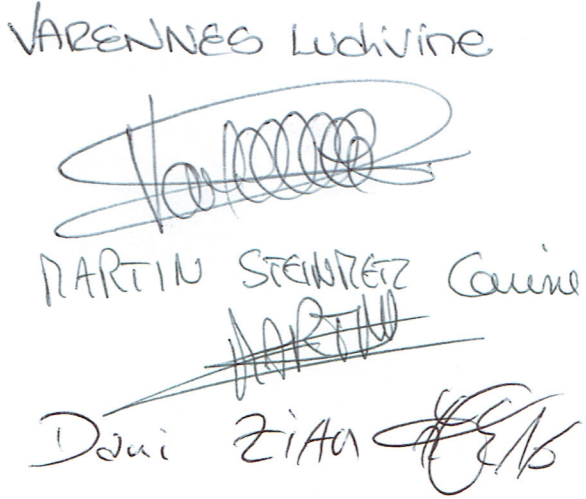 VARENNES Ludivine
MARTIN STEINMETZ Carine
MARTIN
Dani ZIAN